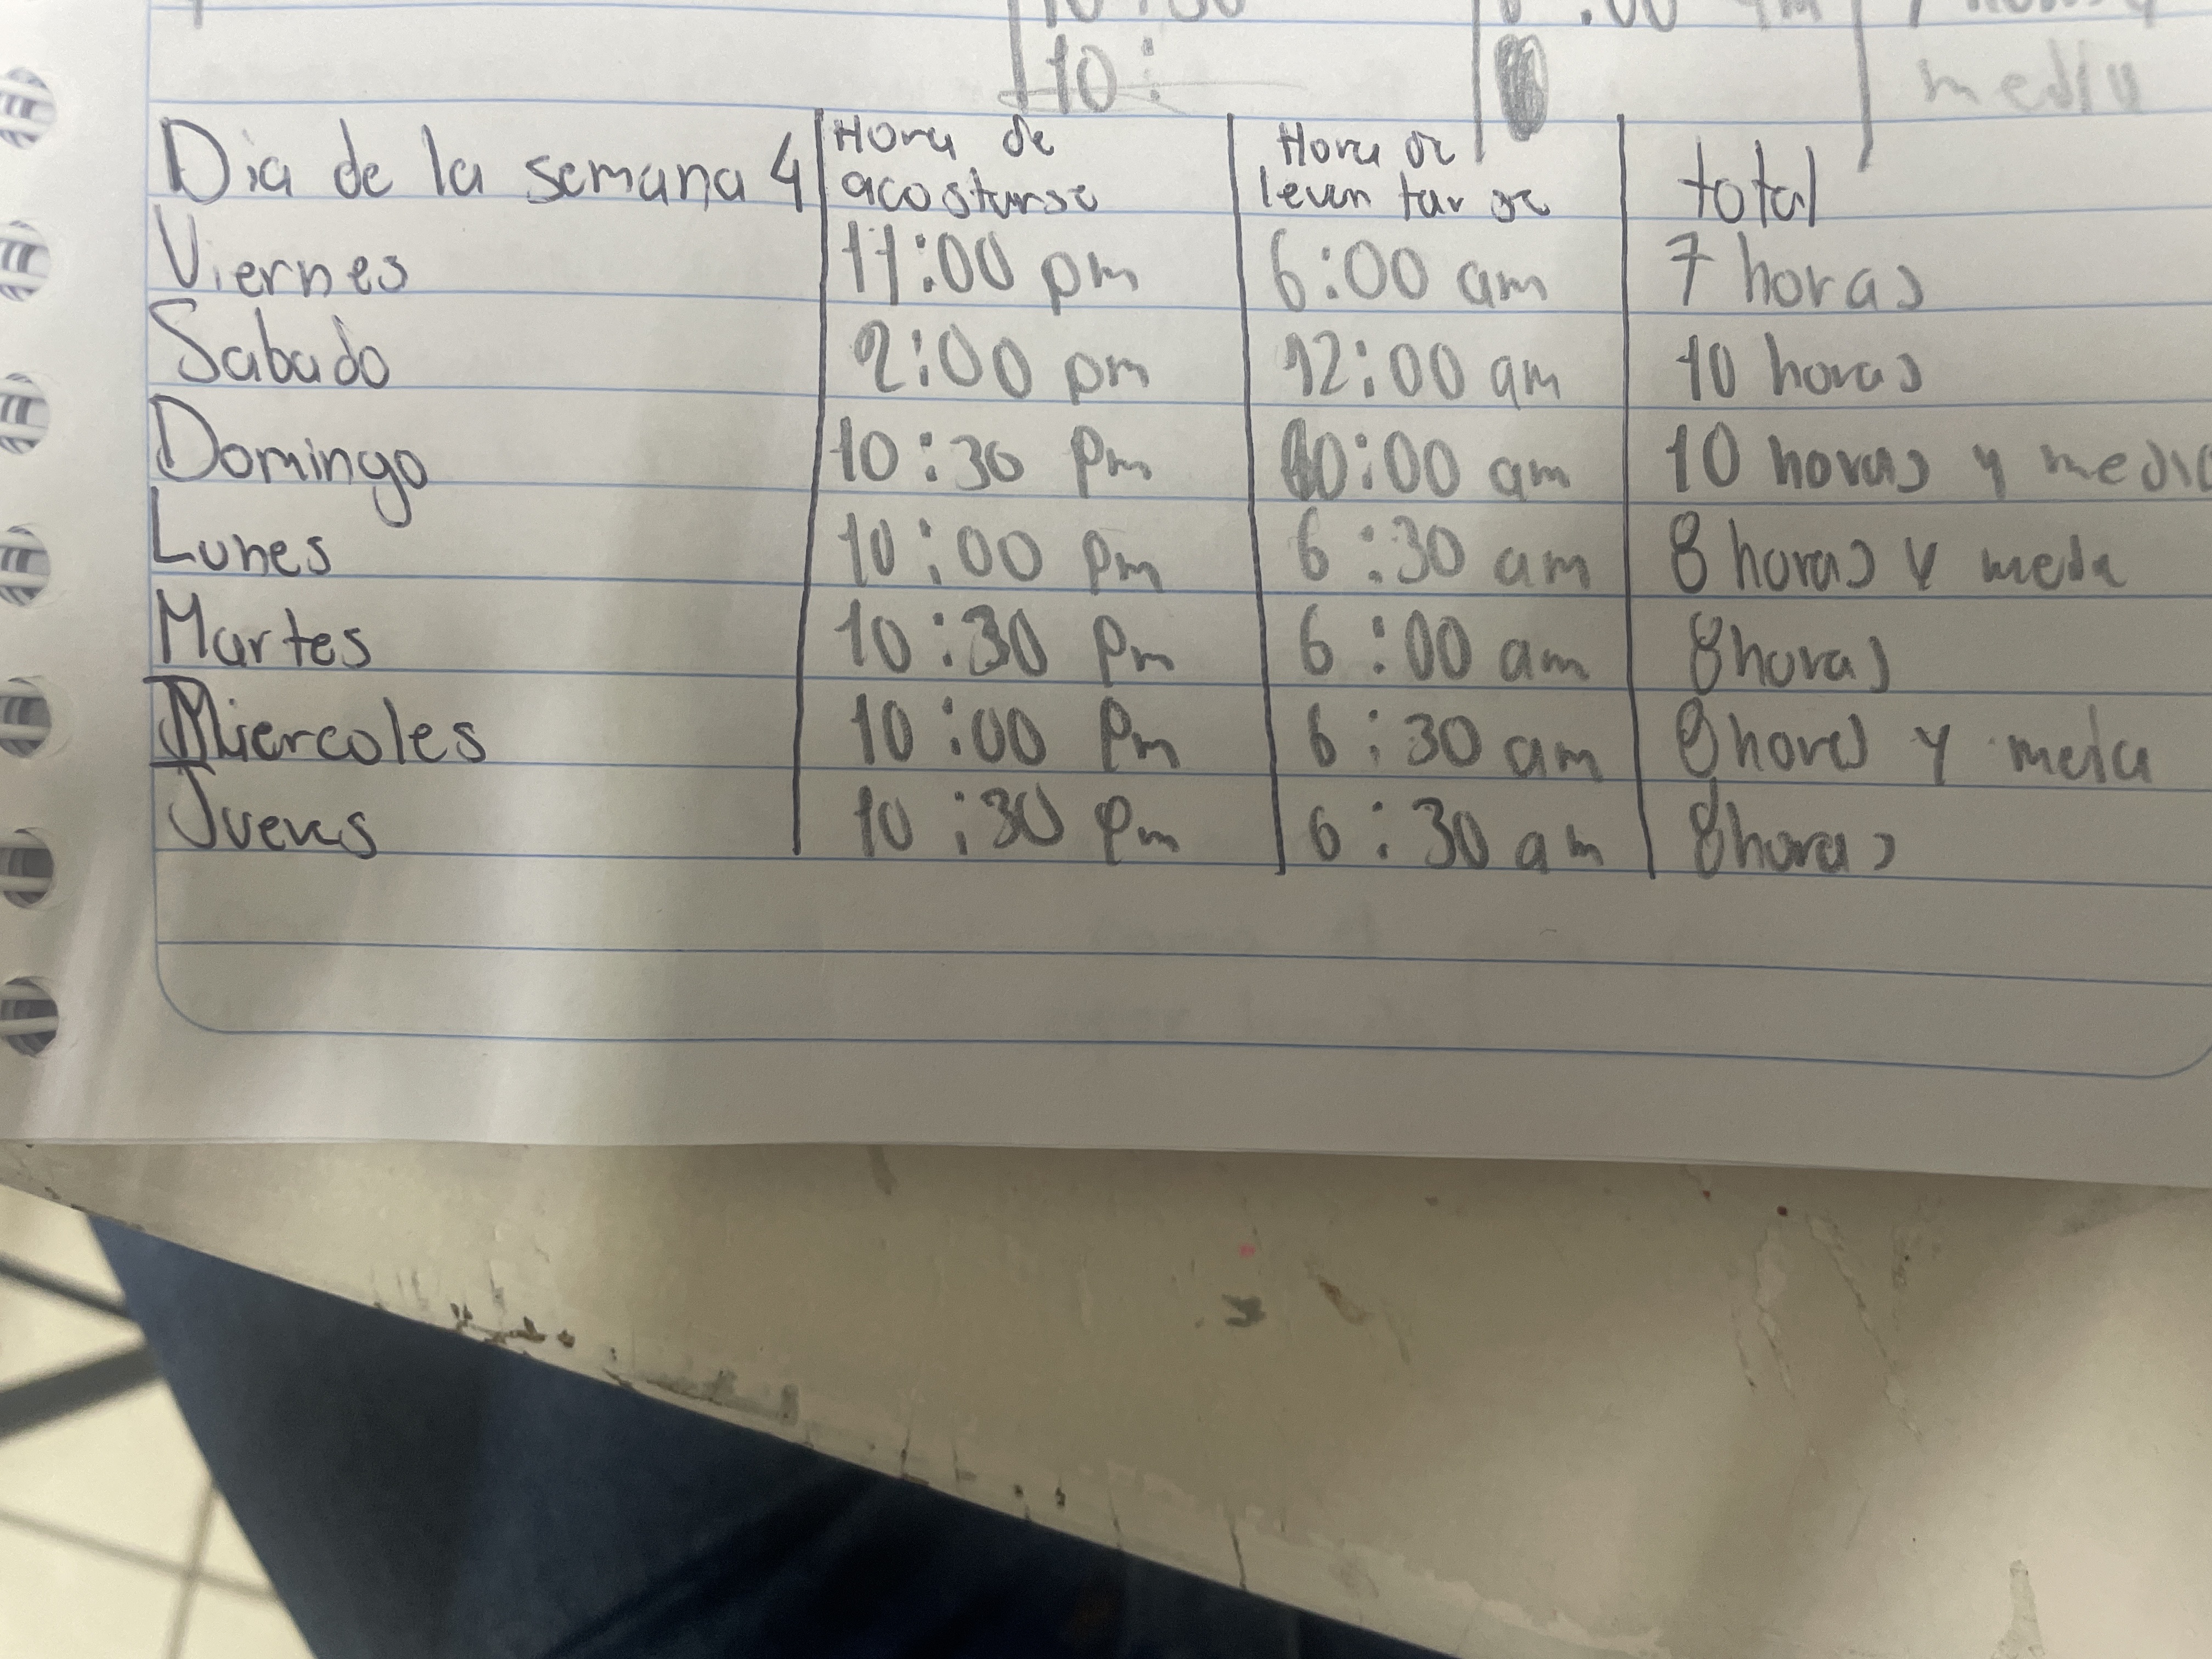 10:
media
Dia de la semana 4 Hora de acostarse Hora de levantarse total
Viernes 11:00 pm 6:00 am 7 horas
Sabado 2:00 pm 12:00 am 10 horas
Domingo 10:30 pm 10:00 am 10 horas y media
Lunes 10:00 pm 6:30 am 8 horas y meda
Martes 10:30 pm 6:00 am 8 horas
Miercoles 10:00 pm 6:30 am 8 horas y meda
Jueves 10:30 pm 6:30 am 8 horas